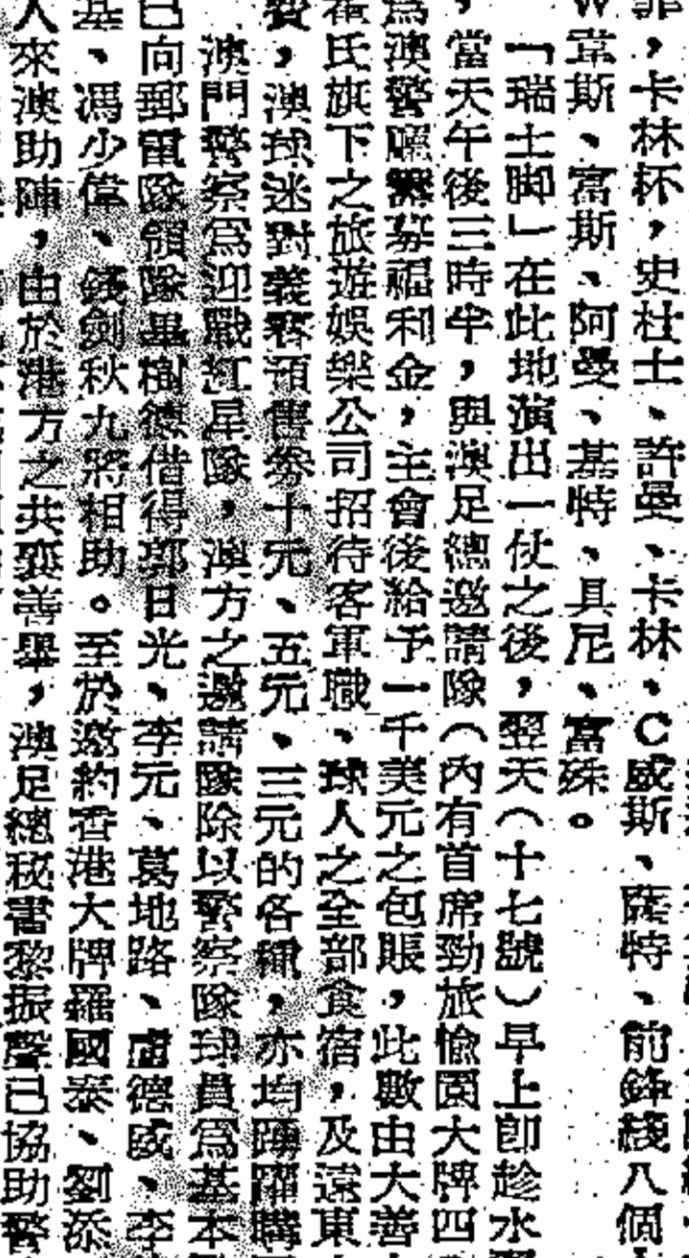 卡林杯，史杜士、許曼、卡林、C威斯、薩特、前鋒綫八個
W韋斯、富斯、阿曼、基特、具尼、富殊。
「瑞士脚」在此地演出一仗之後，翌天（十七號）早上卽趁水
，當天午後三時半，與澳足總邀請隊（內有首席勁旅愉園大牌四
爲澳警籌募福利金，主會後給予一千美元之包賬，此數由大善
霍氏旗下之旅遊娛樂公司招待客軍職、球人之全部食宿，及遠東
費，澳球迷對義賽預售劵十元、五元、三元的各種，亦均踴躍購
澳門警察爲迎戰紅星隊，澳方之邀請隊除以警察隊球員爲基本
已向郵電隊領隊畢樹德借得郭日光、李元、葛地路、盧德威、李
基、馮少偉、錢劍秋九將相助。至於邀約香港大牌羅國泰、劉添
人來澳助陣，由於港方之共襄善舉，澳足總秘書黎振聲已協助警